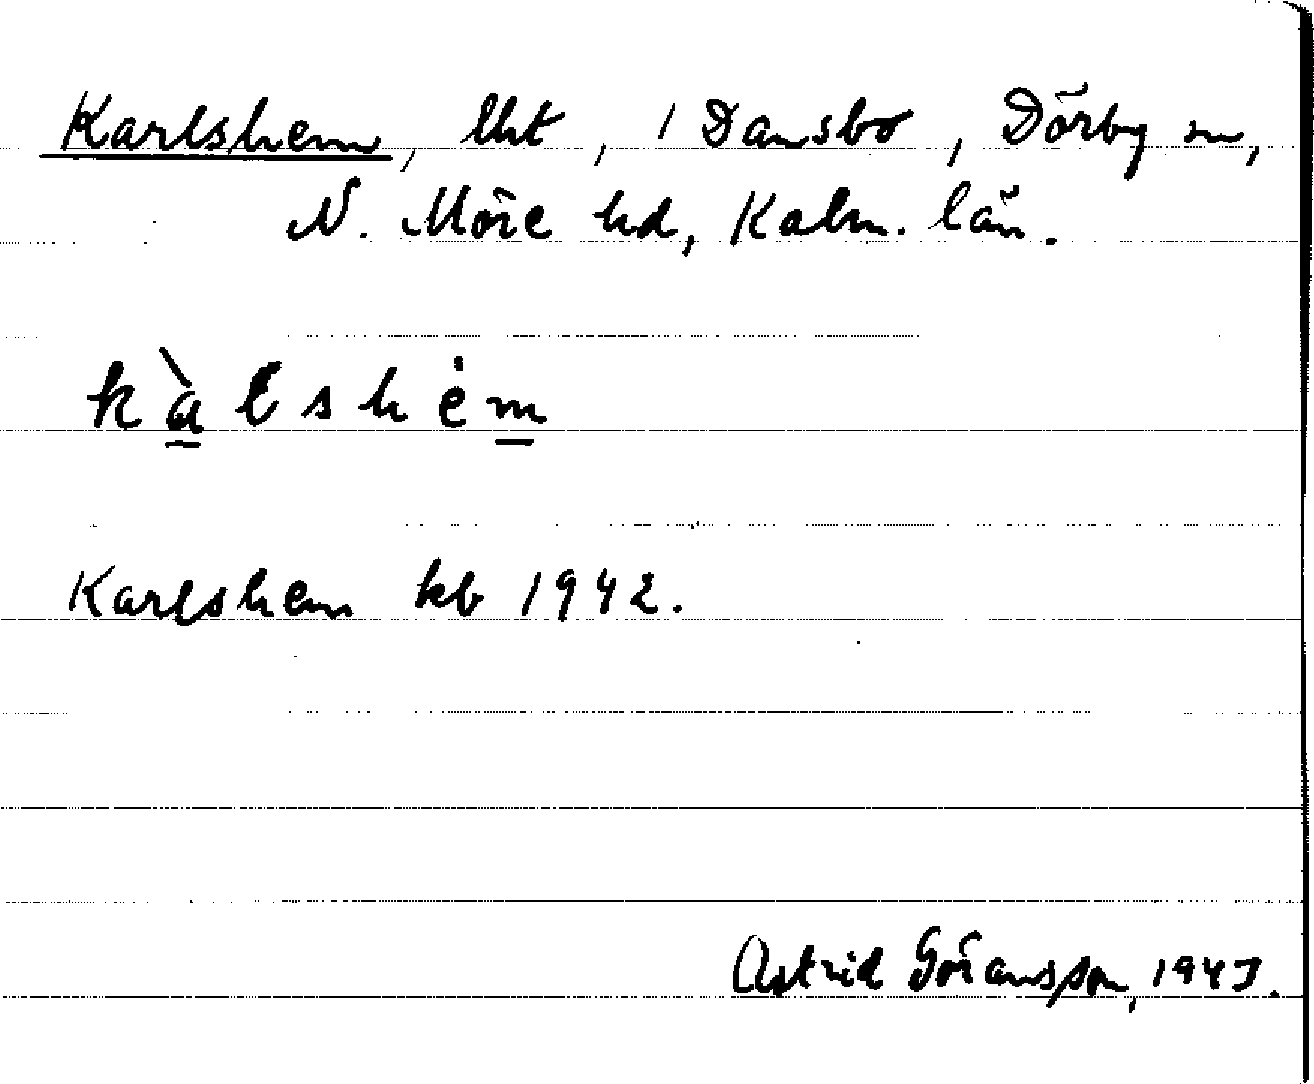 Karlshem, lht, i Dansbo, Dörby sn,
N. Möre hd, Kalm. län.
kàlshėm
Karlshem kb 1942.
Astrid Göransson, 1943.